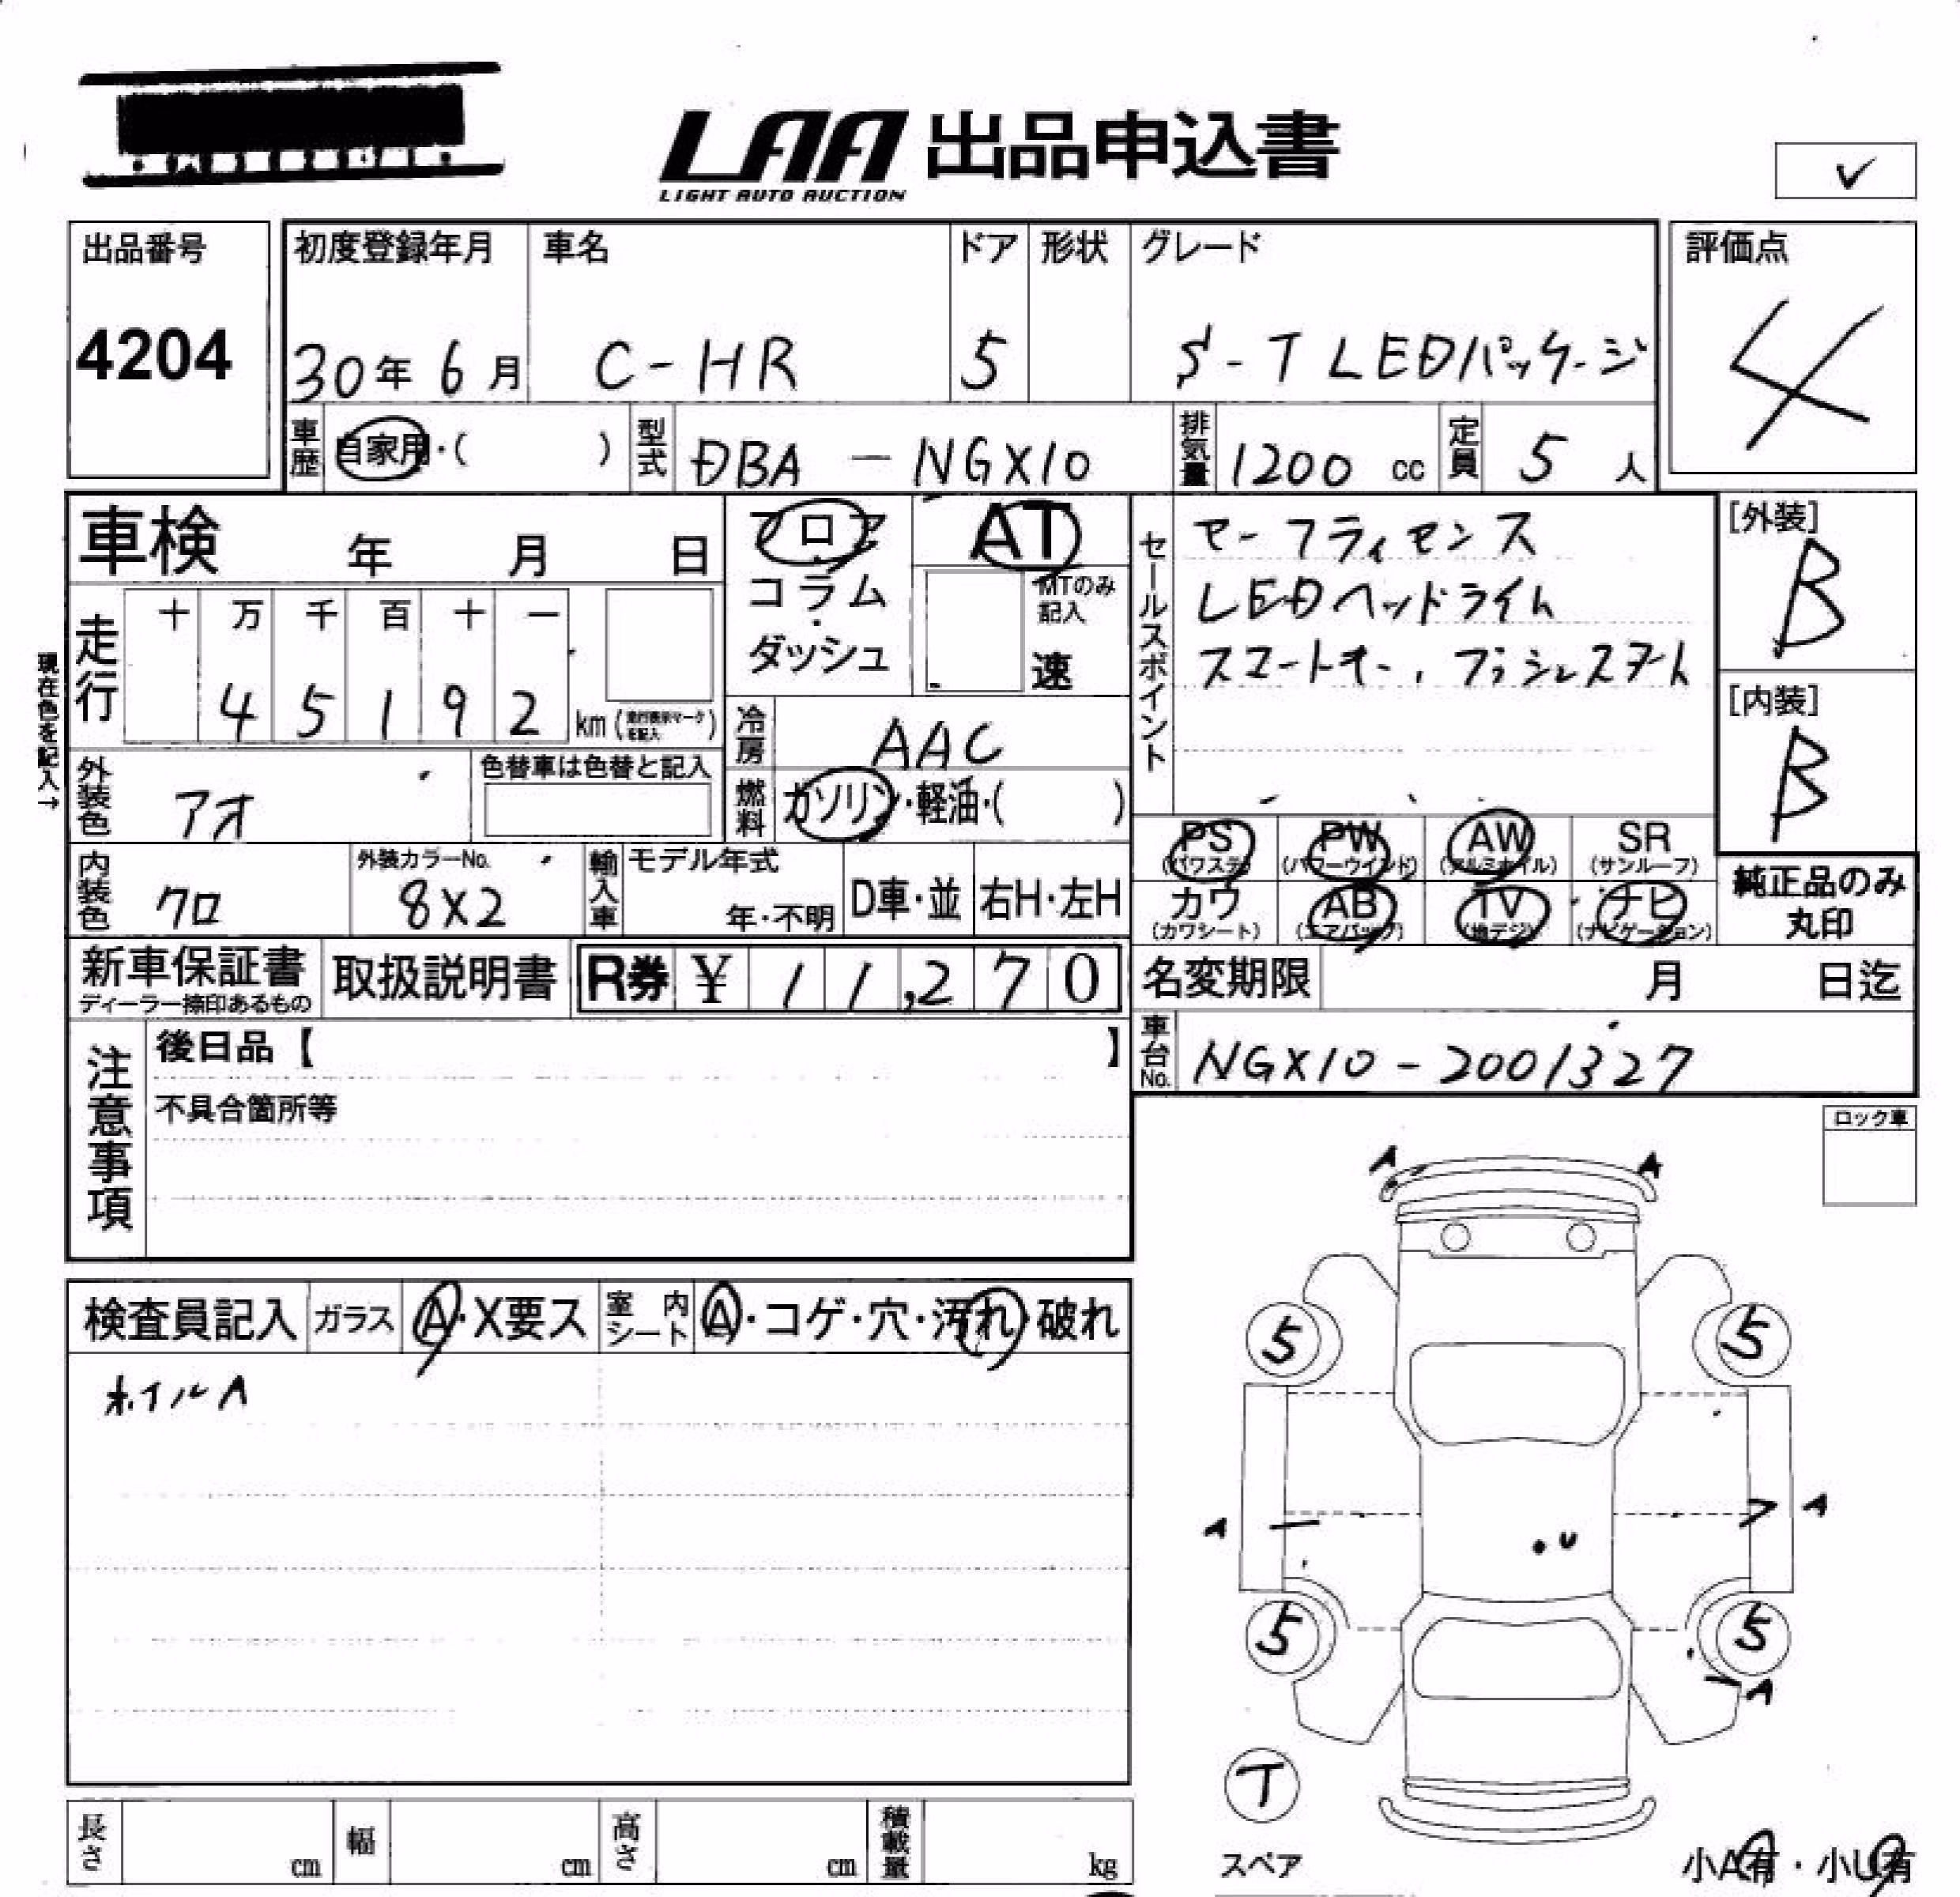 LAA 出品申込書
LIGHT AUTO AUCTION
✓
出品番号 初度登録年月 車名 ドア 形状 グレード 評価点
4204 30年 6月 C-HR 5 S-T LEDパッケージ 4
車歴 自家用・( ) 型式 DBA - NGX10 排気量 1200 cc 定員 5 人
車検 年 月 日
フロア・コラム・ダッシュ
AT
MTのみ記入
速
セールスポイント
セーフティセンス
LEDヘッドライト
スマートキー, プッシュスタート
[外装]
B
[内装]
B
現在色を記入→
走行 十 万 千 百 十 一
4 5 1 9 2 km (走行表示マークを記入)
冷房 AAC
燃料 ガソリン・軽油・( )
外装色 アオ 色替車は色替と記入
PS (パワステ) PW (パワーウインド) AW (アルミホイル) SR (サンルーフ)
カワ (カワシート) AB (エアバック) TV (地デジ) ナビ (ナビゲーション)
純正品のみ丸印
内装色 クロ 外装カラーNo. 8X2 輸入車 モデル年式 年・不明 D車・並 右H・左H
新車保証書 ディーラー捺印あるもの 取扱説明書 R券 ¥ 11,270
名変期限 月 日迄
車台No. NGX10-2001327
注意事項
後日品【 】
不具合箇所等
ロック車
検査員記入 ガラス A・X要ス 室内シート A・コゲ・穴・汚れ・破れ
ホイルA
A A
5 5
A A
U
5 5
A
T
スペア
小A有・小U有
長さ cm 幅 cm 高さ cm 積載量 kg